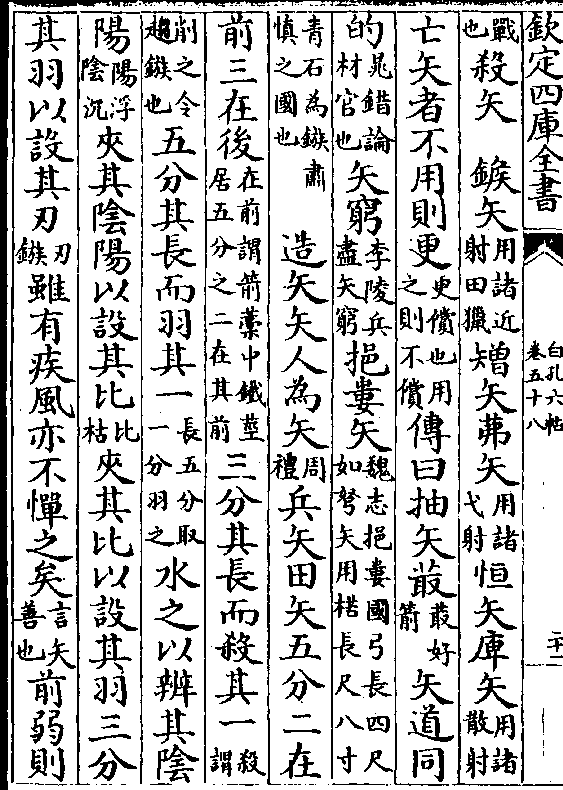 欽定四庫全書
白孔六帖
卷五十八
戰也殺矢 鍭矢用諸近射田獵矰矢茀矢用諸弋射恒矢庫矢用諸散射
亡矢者不用則更更償也用之則不償傳曰抽矢菆菆好箭矢道同
的晁錯論材官也矢窮李陵兵盡矢窮挹婁矢魏志挹婁國弓長四尺如弩矢用楛長尺八寸
青石為鏃肅慎之國也 造矢矢人為矢周禮兵矢田矢五分二在
前三在後在前謂箭藁中鐵莖居五分之二在其前三分其長而殺其一殺謂
削之令趨鏃也五分其長而羽其一長五分取一分羽之水之以辨其陰
陽陽浮陰沉夾其陰陽以設其比比枯夾其比以設其羽三分
其羽以設其刃刃鏃雖有疾風亦不憚之矣言矢善也前弱則